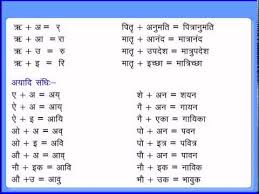 ऋ + अ = र पितृ + अनुमति = पित्रानुमति
ऋ + आ = रा मातृ + आनंद = मात्रानंद
ऋ + उ = रु मातृ + उपदेश = मात्रुपदेश
ऋ + इ = रि मातृ + इच्छा = मात्रिच्छा
अयादि संधिः-
ऐ + अ = अय् शे + अन = शयन
ऐ + अ = आय् गै + अन = गायन
ऐ + ए = आय् गै + एका = गायिका
ओ + अ = अव् पो + अन = पवन
ओ + अ = अव् पो + इत्र = पवित्र
ओ + अ = आव् पौ + अन = पावन
नौ + इक = आवि नौ + इक = नाविक
औ + उ = आवु भौ + उक = भावुक